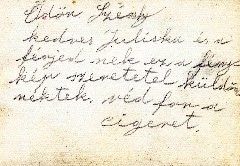 Ödön Szécsy
kedves Juliska és a
férjed nek ez a feny
kép szeretetel küldöm
nektek. véd fon a
cigeret.